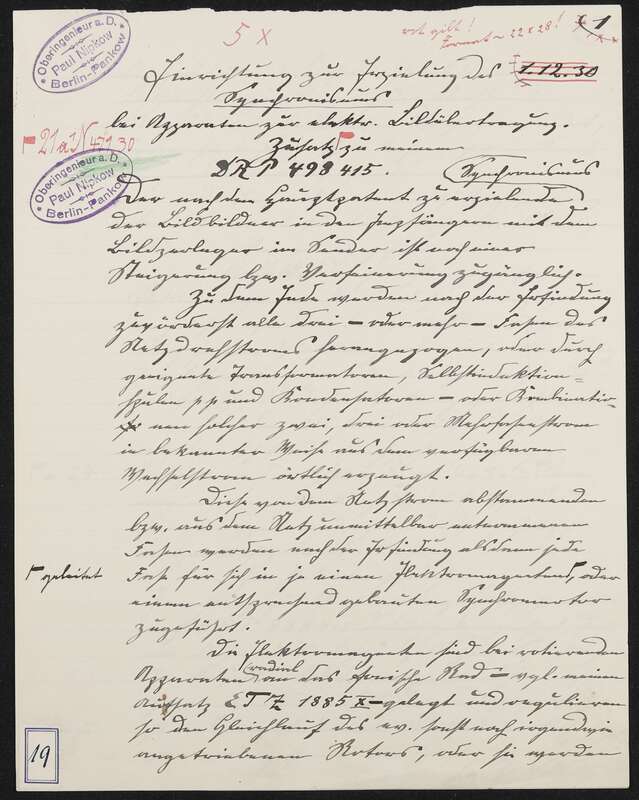 Oberingenieur a. D.
Paul Nipkow
Berlin-Pankow
5 x
rot gilt!
Format ~ 22 x 28!
1
Einrichtung zur Erzielung des
1.12.30
Synchronismus
bei Apparaten zur elektr. Bildübertragung.
Zusatz zu meinem
DRP 498 415.
21 a1 N 471 30
Oberingenieur a. D.
Paul Nipkow
Berlin-Pankow
Synchronismus
Der nach dem Hauptpatent zu erzielende
der Bildbildner in den Empfängern mit dem
Bildzerleger im Sender ist noch einer
Steigerung bzw. Verfeinerung zugänglich.
Zu dem Ende werden nach der Erfindung
zuvörderst alle drei – oder mehr – Fasen des
Netzdrehstromes herangezogen, oder durch
geeignete Transformatoren, Selbstinduktion=
spulen pp und Kondensatoren – oder Kombinatio-
nen solcher zwei, drei oder Mehrfasenstrom
in bekannter Weise aus dem verfügbaren
Wechselstrom örtlich erzeugt.
Diese von dem Netzstrom abstammenden
bzw. aus dem Netz unmittelbar entnommenen
Fasen werden nach der Erfindung alsdann jede
geleitet
Fase für sich in je einen Elektromagneten, oder
einem entsprechend gebauten Synchronmotor
zugeführt.
Die Elektromagneten sind bei rotierenden
radial
Apparaten an das fonische Rad – vgl. meinen
Aufsatz ETZ 1885 X – gelegt und regulieren
so den Gleichlauf des ev. sonst noch irgendwie
angetriebenen Rotors, oder sie werden
19